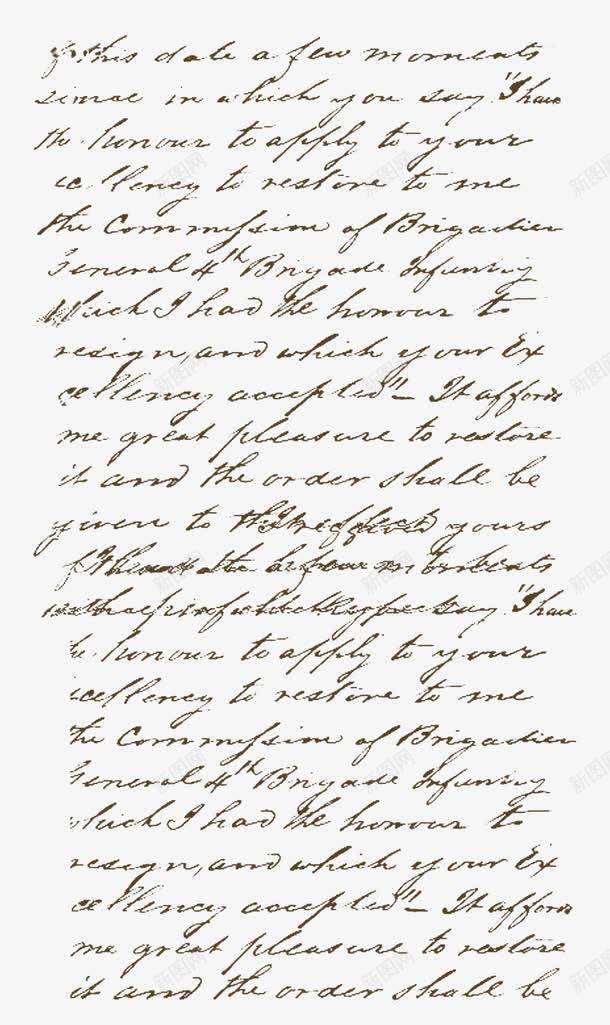 of this date a few moments
since in which you say "I have
the honour to apply to your
cellency to restore to me
the Commission of Brigadier
General 4th Brigade Infantry
Which I had the honour to
resign, and which your Ex
cellency accepted" — It affords
me great pleasure to restore
it and the order shall be
given to yours
moments
say "I have
he honour to apply to your
icellency to restore to me
the Commission of Brigadier
General 4th Brigade Infantry
which I had the honour to
resign, and which your Ex
cellency accepted" — It affords
me great pleasure to restore
it and the order shall be